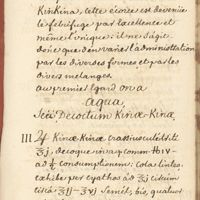 KinKina, cette écorce est devenüe
le febrifuge par excellence et
même l'unique: il ne s'agit
donc que d'en varier l'administration
par les diverses formes et par les
divers mélanges.
au premier égard on a
aqua,
Seu Decoctum Kinæ-Kinæ
III ♃ Kinæ-Kinæ crassiuscule trit.
℥j, decoque in aq comm. lb iv
ad ½ consumptionem: cola; lintea,
exhibe per cyathos ad ℥j
circà ℥ij - ℥vj Semel, bis, quatuor